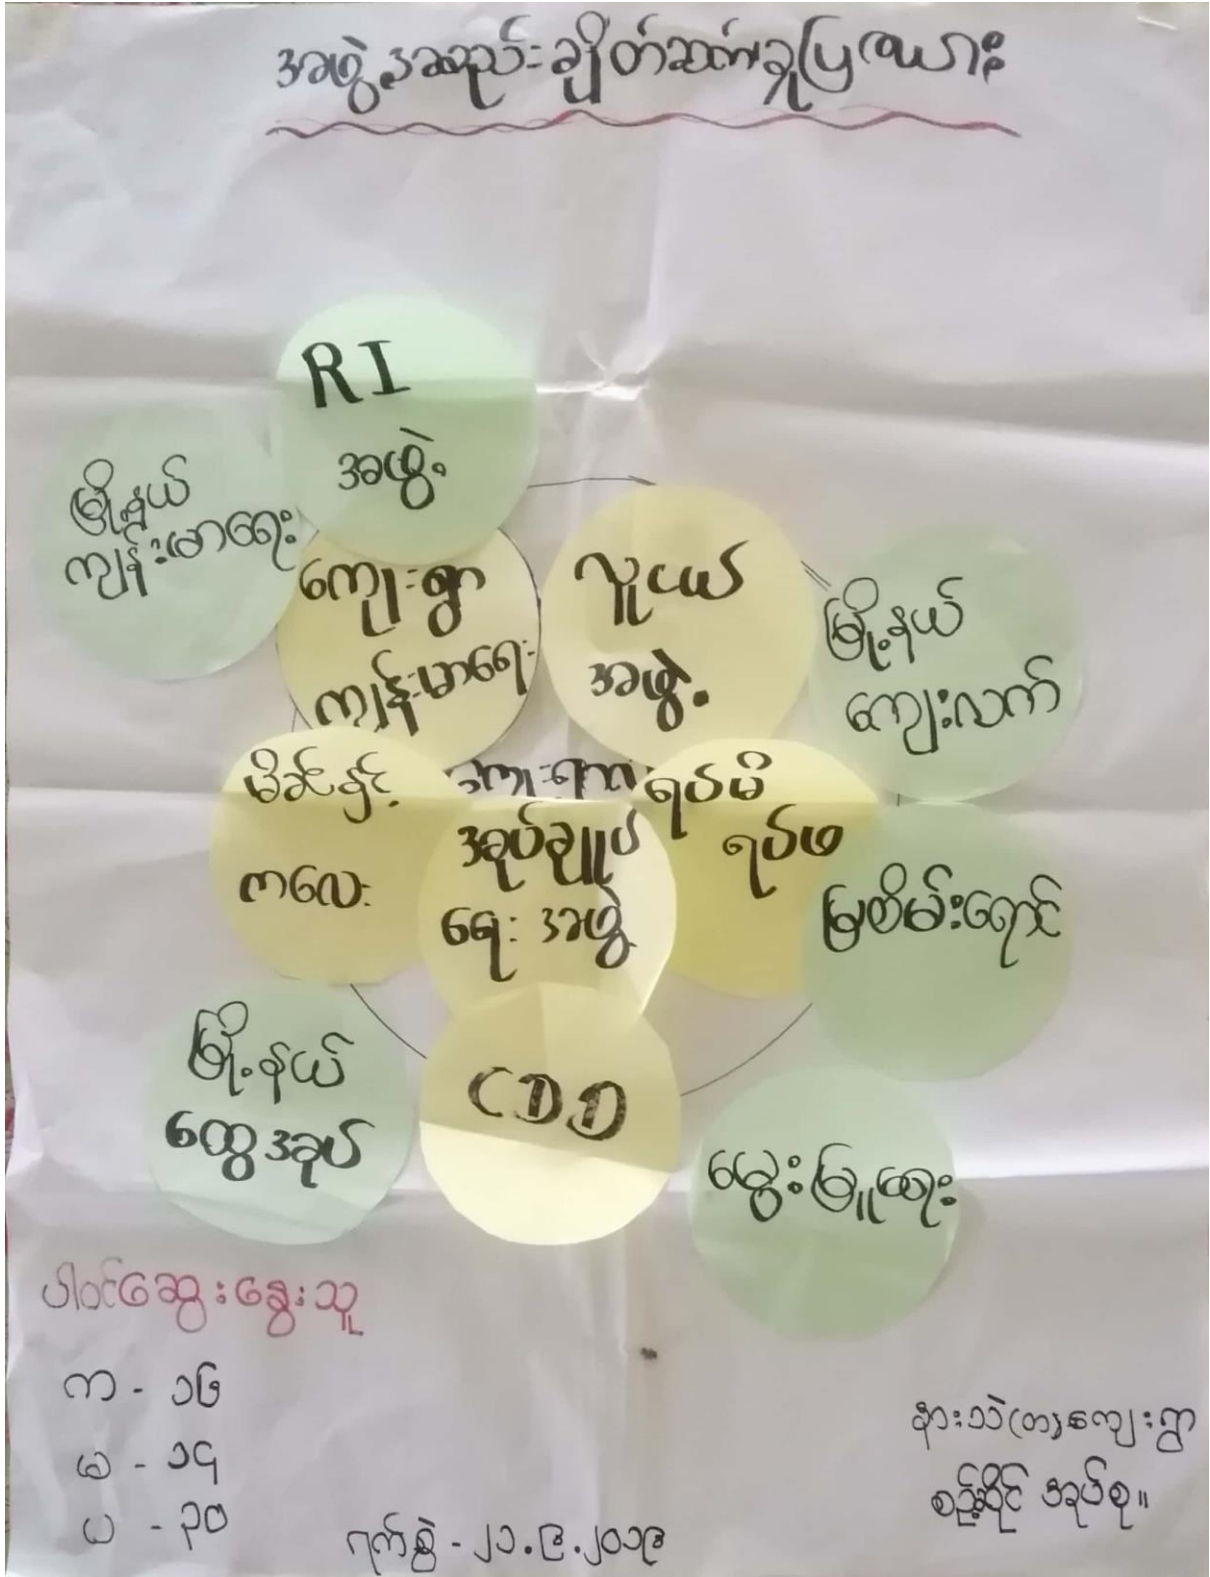 အဖွဲ့အစည်းချိတ်ဆက်မှုပြဇယား
RI
အဖွဲ့
မြို့နယ်
ကျန်းမာရေး
ကျေးရွာ
ကျန်းမာရေး
လူငယ်
အဖွဲ့
မြို့နယ်
ကျေးလက်
မိခင်နှင့်
ကလေး
ကျေးရွာ
အုပ်ချုပ်
ရေး အဖွဲ့
ရပ်မိ
ရပ်ဖ
မြစိမ်းရောင်
မြို့နယ်
ထွေအုပ်
CDD
မွေးမြူရေး
ပါဝင်ဆွေးနွေးသူ
က - ၁၆
မ - ၁၄
ပ - ၃၀
ရက်စွဲ - ၂၁.၉.၂၀၁၉
စည်ဆိုင် အုပ်စု။